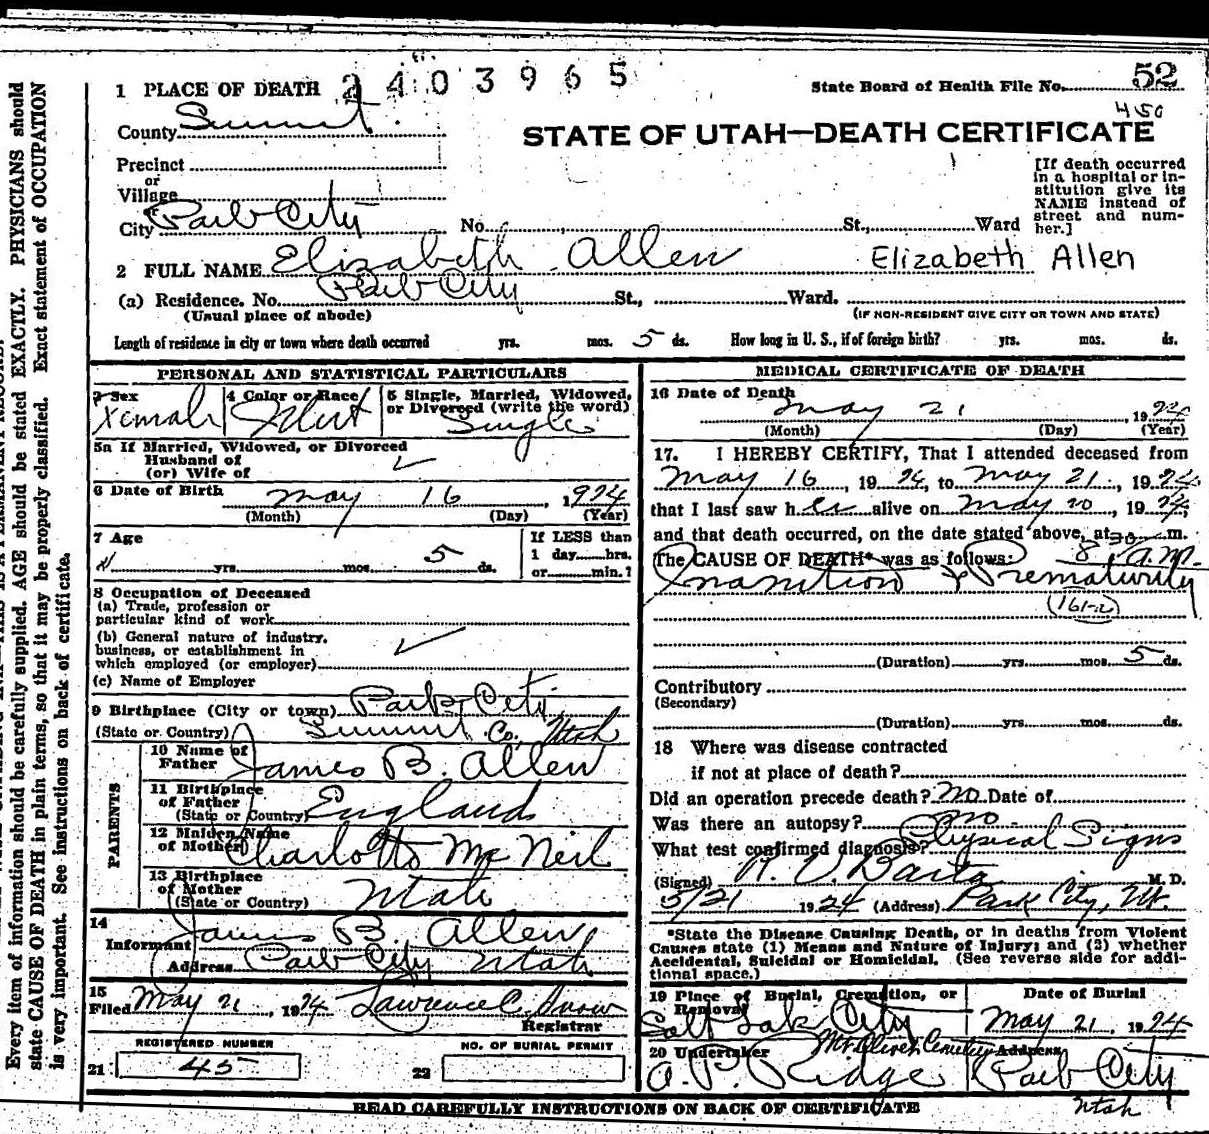 2403965
State Board of Health File No. 52
450
1 PLACE OF DEATH
County Summit.
STATE OF UTAH—DEATH CERTIFICATE
Precinct
or
Village
City Park City No. St., Ward
[If death occurred
in a hospital or in-
stitution give its
NAME instead of
street and num-
ber.]
2 FULL NAME Elizabeth Allen Elizabeth Allen
(a) Residence. No. Park City St., Ward.
(Usual place of abode) (IF NON-RESIDENT GIVE CITY OR TOWN AND STATE)
Length of residence in city or town where death occurred yrs. mos. 5 ds. How long in U. S., if of foreign birth? yrs. mos. ds.
PERSONAL AND STATISTICAL PARTICULARS
3 Sex
Female
4 Color or Race
White
5 Single, Married, Widowed,
or Divorced (write the word)
Single
5a If Married, Widowed, or Divorced
Husband of
(or) Wife of
6 Date of Birth May 16, 1924
(Month) (Day) (Year)
7 Age
yrs. mos. 5 ds.
If LESS than
1 day hrs.
or min.?
8 Occupation of Deceased
(a) Trade, profession or
particular kind of work
(b) General nature of industry,
business, or establishment in
which employed (or employer)
(c) Name of Employer
9 Birthplace (City or town) Park City
(State or Country) Summit Co. Utah
PARENTS
10 Name of
Father James B. Allen
11 Birthplace
of Father
(State or Country) England
12 Maiden Name
of Mother Charlotte McNeil
13 Birthplace
of Mother
(State or Country) Utah
14
Informant James B. Allen
Address Park City Utah
15
Filed May 21, 1924 Lawrence C. Snow
Registrar
REGISTERED NUMBER
21: 45
NO. OF BURIAL PERMIT
22
MEDICAL CERTIFICATE OF DEATH
16 Date of Death
May 21 1924
(Month) (Day) (Year)
17. I HEREBY CERTIFY, That I attended deceased from
May 16, 1924, to May 21, 1924
that I last saw her alive on May 20, 1924,
and that death occurred, on the date stated above, at 8 30 a.m. m.
The CAUSE OF DEATH* was as follows:
Inanition & Prematurity
(161-2)
(Duration) yrs. mos. 5 ds.
Contributory
(Secondary)
(Duration) yrs. mos. ds.
18 Where was disease contracted
if not at place of death?
Did an operation precede death? no Date of
Was there an autopsy? no
What test confirmed diagnosis? Physical Signs
(Signed) M. D.
5/21 1924 (Address) Park City, Ut.
*State the Disease Causing Death, or in deaths from Violent
Causes state (1) Means and Nature of Injury; and (2) whether
Accidental, Suicidal or Homicidal. (See reverse side for addi-
tional space.)
19 Place of Burial, Cremation, or
Removal
Salt Lake City
Mt Olivet Cemetery
Date of Burial
May 21, 1924
20 Undertaker
Address
Park City
Utah
READ CAREFULLY INSTRUCTIONS ON BACK OF CERTIFICATE
Every item of information should be carefully supplied. AGE should be stated EXACTLY. PHYSICIANS should
state CAUSE OF DEATH in plain terms, so that it may be properly classified. Exact statement of OCCUPATION
is very important. See instructions on back of certificate.